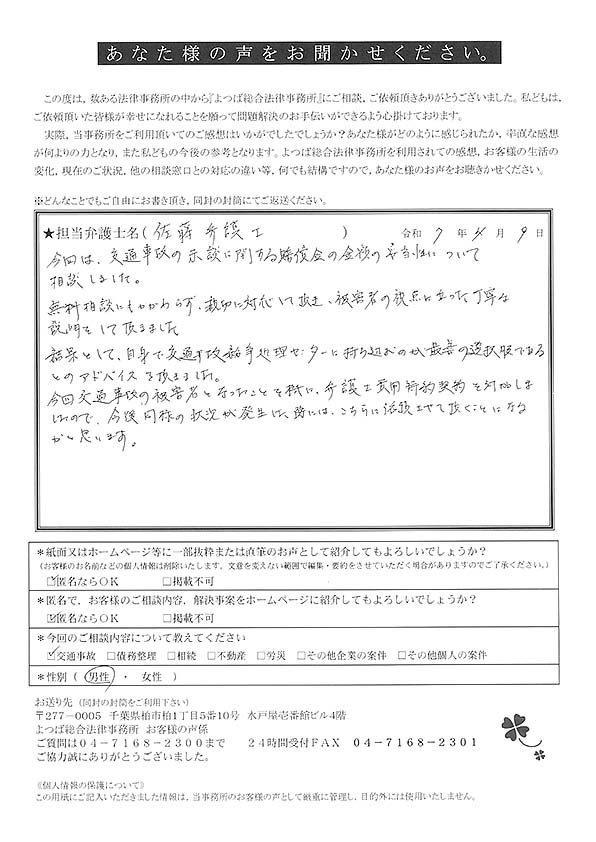 あなた様の声をお聞かせください。
この度は、数ある法律事務所の中から『よつば総合法律事務所』にご相談、ご依頼頂きありがとうございました。私どもは、
ご依頼頂いた皆様が幸せになれることを願って問題解決のお手伝いができるよう心掛けております。
実際、当事務所をご利用頂いてのご感想はいかがでしたでしょうか？あなた様がどのように感じられたか、率直な感想
が何よりの力となり、また私どもの今後の参考となります。よつば総合法律事務所を利用されての感想、お客様の生活の
変化、現在のご状況、他の相談窓口との対応の違い等、何でも結構ですので、あなた様のお声をお聴きかせください。
※どんなことでもご自由にお書き頂き、同封の封筒にてご返送ください。
★担当弁護士名( 佐藤弁護士 ) 令和 7 年 4 月 9 日
今回は、交通事故の示談に関する賠償金の金額の妥当性について
相談しました。
無料相談にもかかわらず、親切に対応して頂き、被害者の視点に立った丁寧な
説明をして頂きました
結果として、自身で交通事故紛争処理センターに持ち込むのが最善の選択肢である
とのアドバイスを頂きました。
今回交通事故の被害者となったことを機に、弁護士費用特約契約を対応しま
したので、今後同様の状況が発生した際には、こちらに依頼させて頂くことになる
かと思います。
＊紙面又はホームページ等に一部抜粋または直筆のお声として紹介してもよろしいでしょうか？
(お客様のお名前などの個人情報は削除いたします。文意を変えない範囲で編集・要約をさせていただく場合がありますのでご了承ください。)
☑匿名ならOK □掲載不可
＊匿名で、お客様のご相談内容、解決事案をホームページに紹介してもよろしいでしょうか？
☑匿名ならOK □掲載不可
＊今回のご相談内容について教えてください
☑交通事故 □債務整理 □相続 □不動産 □労災 □その他企業の案件 □その他個人の案件
＊性別 ( 男性 ・ 女性 )
お送り先 (同封の封筒をご利用下さい)
〒277-0005 千葉県柏市柏1丁目5番10号 水戸屋壱番館ビル4階
よつば総合法律事務所 お客様の声係
ご質問は04-7168-2300まで 24時間受付FAX 04-7168-2301
ご協力誠にありがとうございました。
《個人情報の保護について》
この用紙にご記入いただきました情報は、当事務所のお客様の声として厳重に管理し、目的外には使用いたしません。